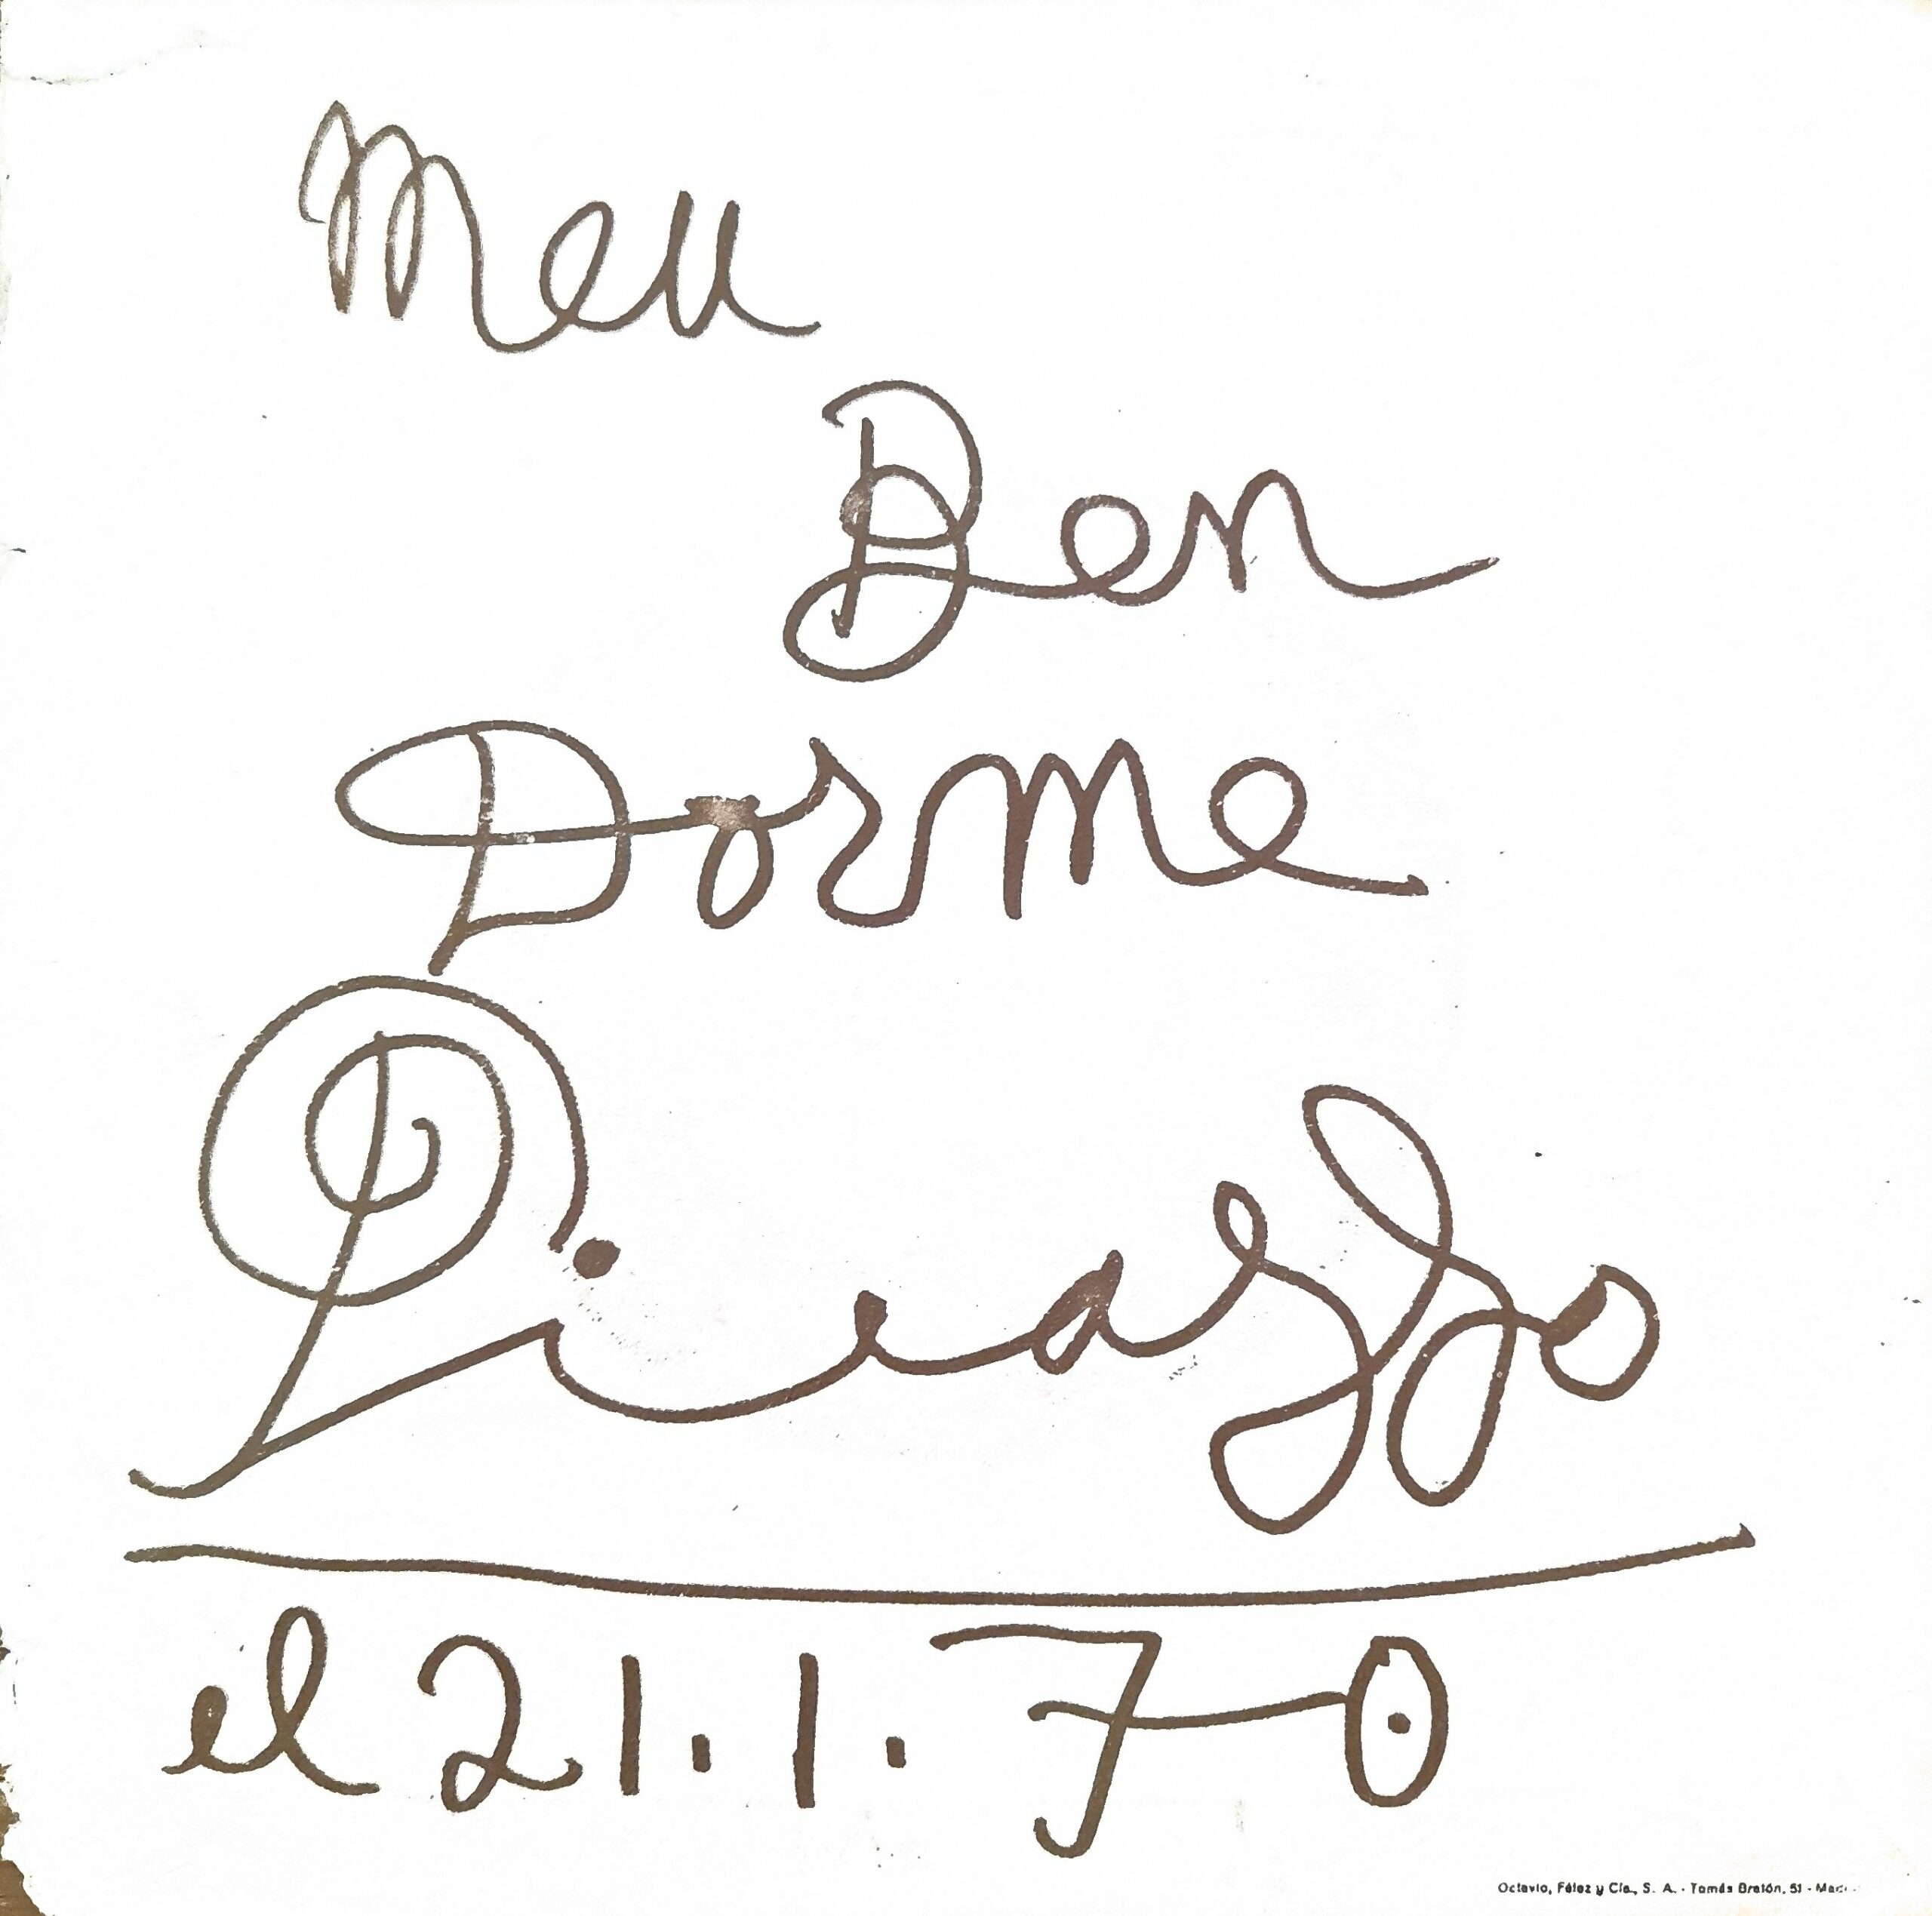 Meu
Ben
Dorme
Picasso
el 21.1.70
Octavio, Félez y Cía., S. A. - Tomás Bretón, 51 -